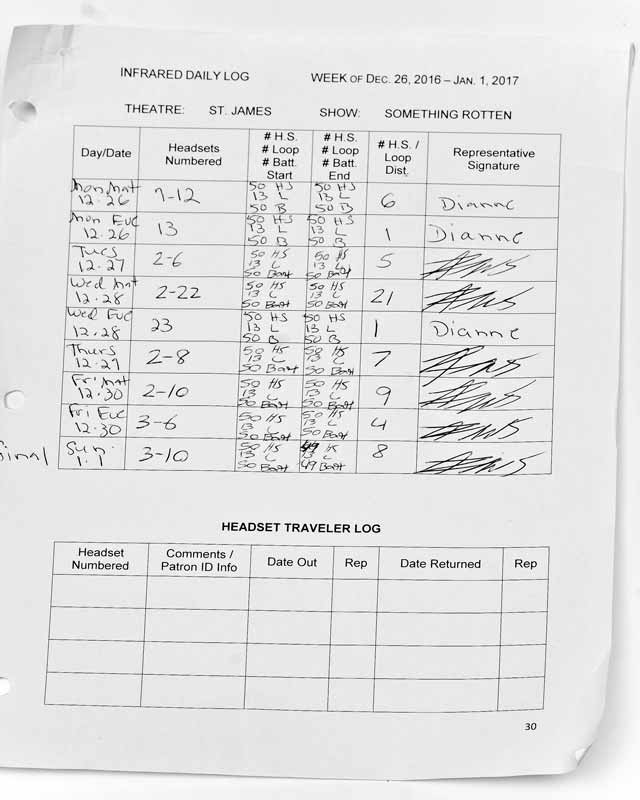 INFRARED DAILY LOG WEEK OF DEC. 26, 2016 – JAN. 1, 2017
THEATRE: ST. JAMES SHOW: SOMETHING ROTTEN
Day/Date Headsets Numbered # H.S. # Loop # Batt. Start # H.S. # Loop # Batt. End # H.S. / Loop Dist. Representative Signature
Mon Mat 12.26 7-12 50 HS 13 L 50 B 50 HS 13 L 50 B 6 Dianne
Mon Eve 12.26 13 50 HS 13 L 50 B 50 HS 13 L 50 B 1 Dianne
Tues 12.27 2-6 50 HS 13 L 50 Batt 50 HS 13 L 50 Batt 5
Wed Mat 12.28 2-22 50 HS 13 L 50 Batt 50 HS 13 L 50 Batt 21
Wed Eve 12.28 23 50 HS 13 L 50 B 50 HS 13 L 50 B 1 Dianne
Thurs 12.29 2-8 50 HS 13 L 50 Batt 50 HS 13 L 50 Batt 7
Fri Mat 12.30 2-10 50 HS 13 L 50 Batt 50 HS 13 L 50 Batt 9
Fri Eve 12.30 3-6 50 HS 13 L 50 Batt 50 HS 13 L 50 Batt 4
final Sun. 1.1 3-10 50 HS 13 L 50 Batt 49 HS 13 L 49 Batt 8
HEADSET TRAVELER LOG
Headset Numbered Comments / Patron ID Info Date Out Rep Date Returned Rep
30